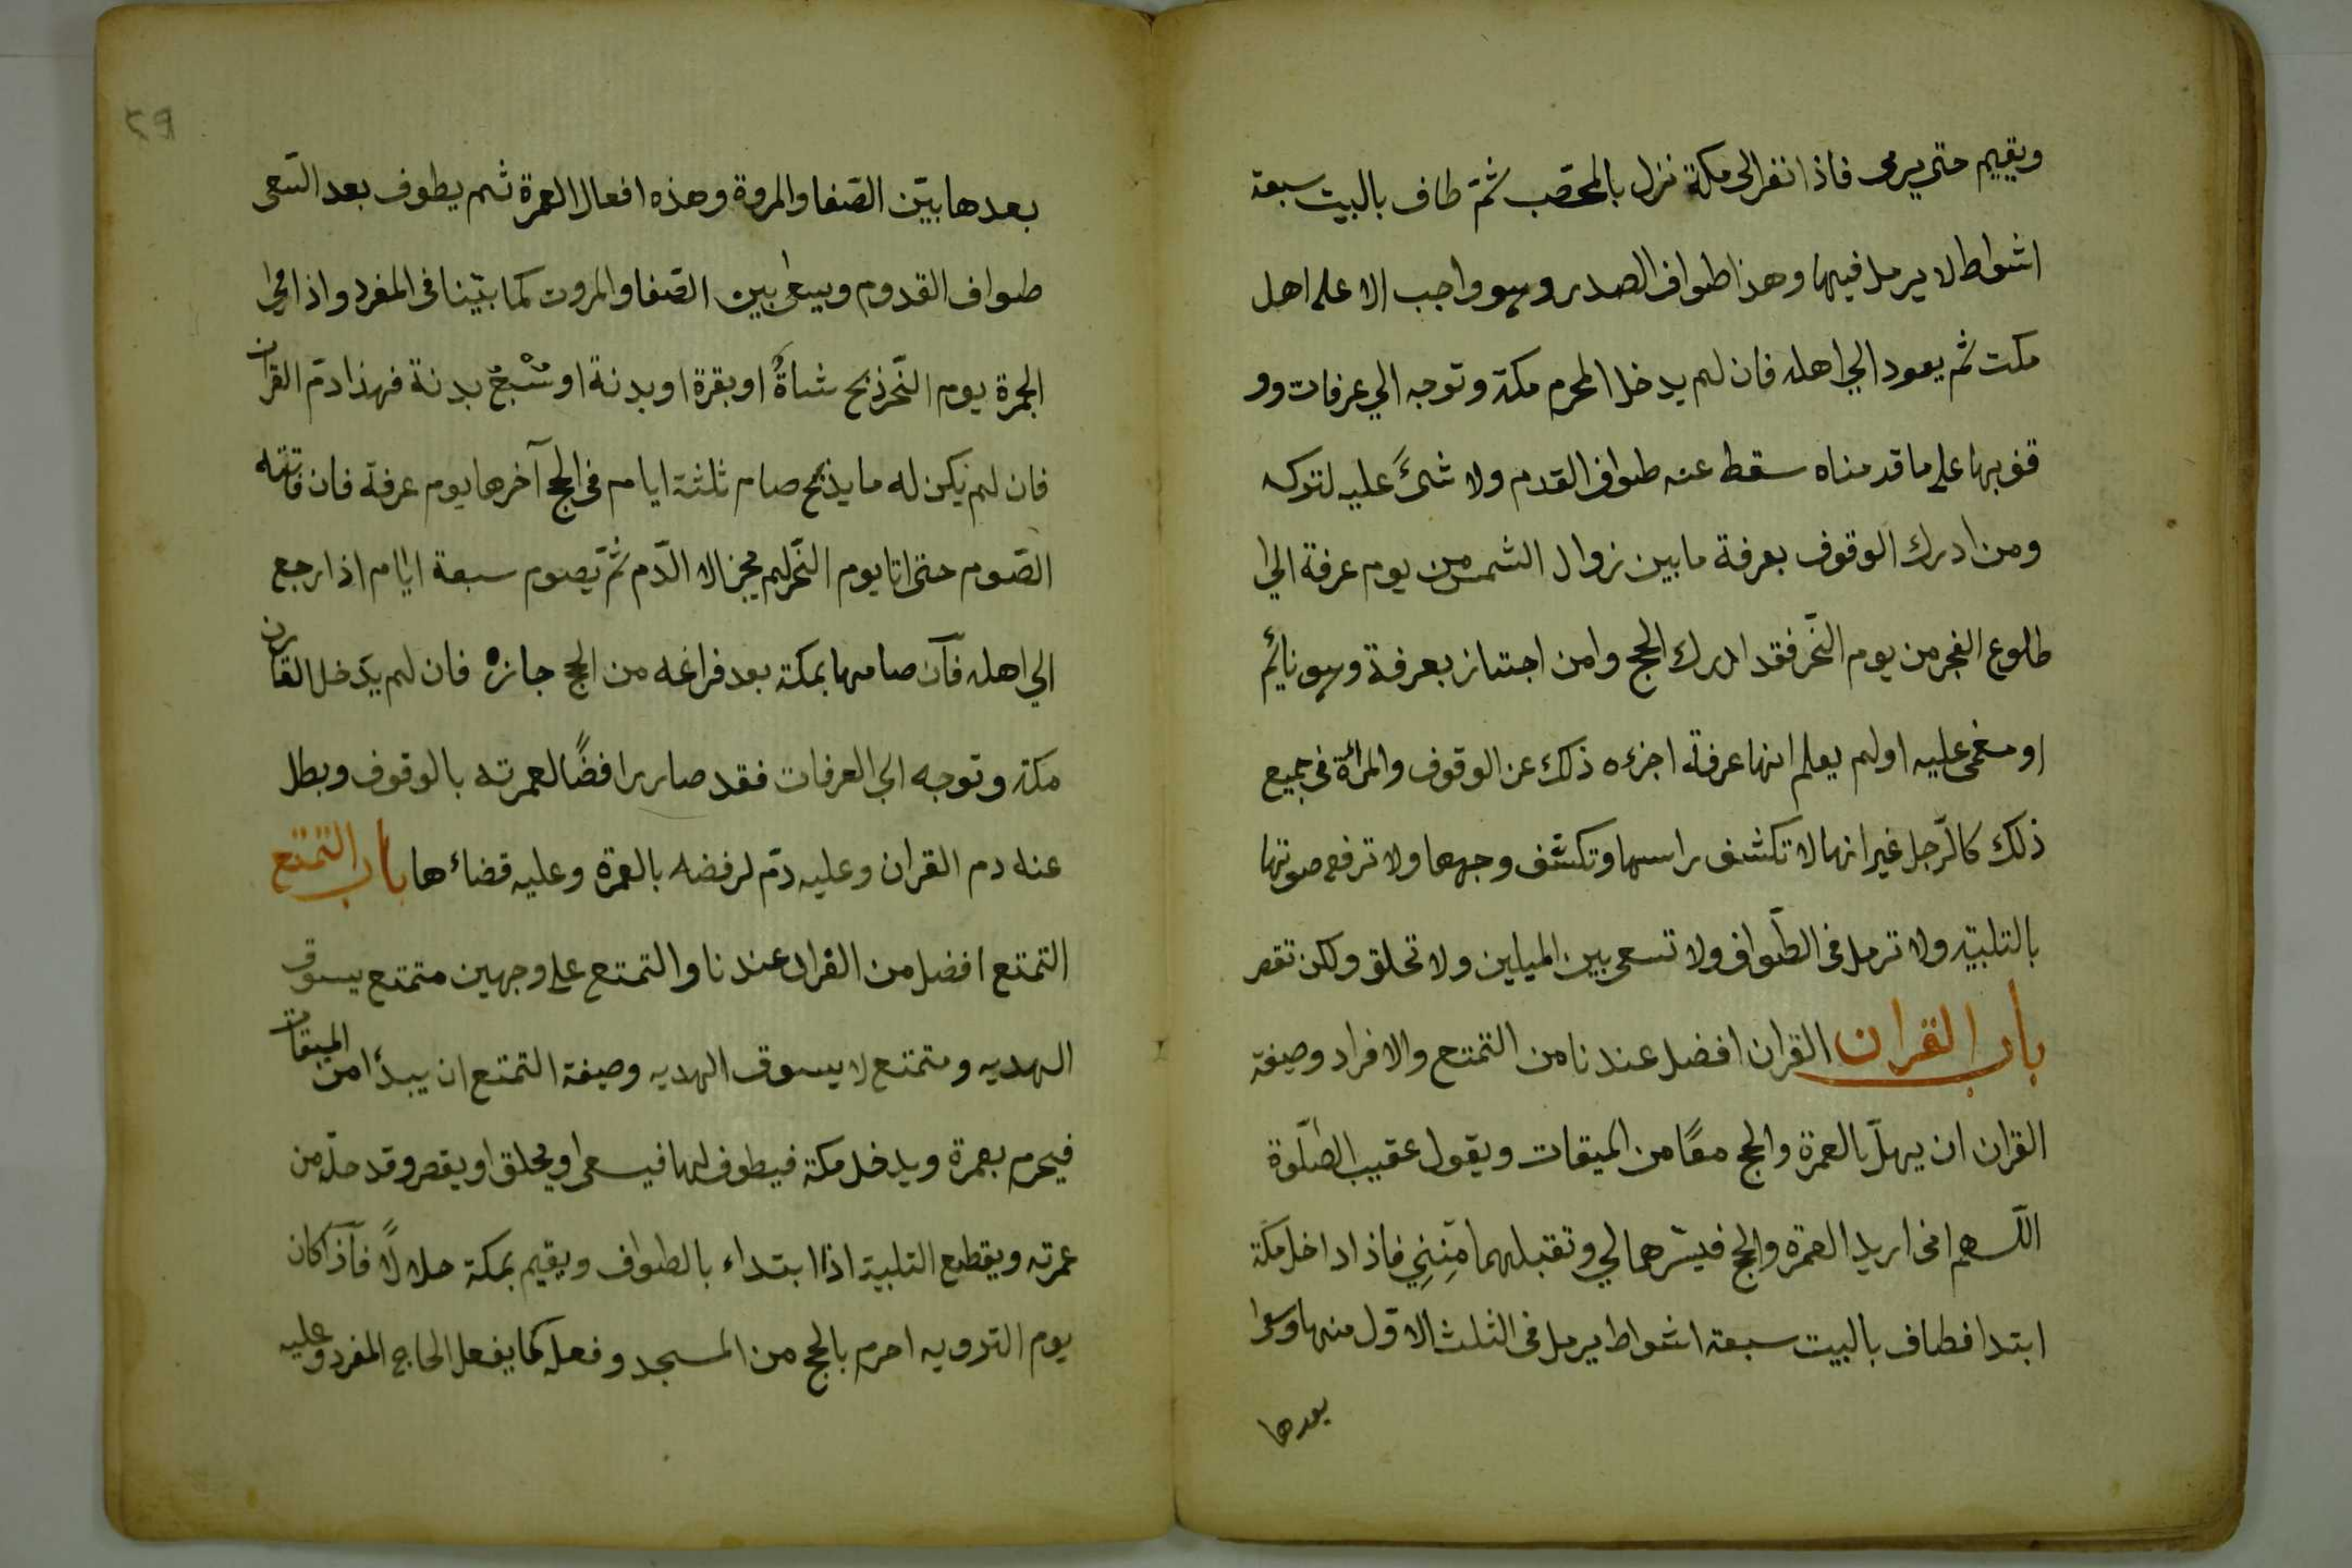 ويقيم حتى يرمى فاذا نفر الى مكة نزل بالمحصّب ثمّ طاف بالبيت سبعة
اشواط لا يرمل فيها وهذا طواف الصدر وهو واجب الا على اهل
مكت ثم يعود الي اهله فان لم يدخل المحرم مكة وتوجه الي عرفات وو
قف بها على ما قدمناه سقط عنه طواف القدم ولا شئً عليه لتركه
ومن ادرك الوقوف بعرفة ما بين زوال الشمس من يوم عرفة الي
طلوع الفجر من يوم النّحر فقد ادرك الحج وامن اجتاز بعرفة وهو نائم
او مغمى عليه اولم يعلم انها عرفة اجزءه ذلك عن الوقوف والمرأة فى جميع
ذلك كالرّجل غير انها لا تكشف راسها وتكشف وجهها ولا ترفع صوتها
بالتلبيّه ولا ترمل فى الطّواف ولا تسعى بين الميلين ولا تحلق ولكن تقصر
باب القران القران افضل عندنا من التمتع والافراد وصيفة
القران ان يهلّ بالعمرة والحج معًا من الميقات ويقول عقيب الصّلوة
اللّهم انى اريد العمرة والحج فيسّرهما لي وتقبلهما مِنِنِي فاذا داخل مكة
ابتدا فطاف بالبيت سبعة اشواط يرمل فى الثلث الاوّل منها وسعى
بعدها
٢٩
بعدها بيّن الصّفا والمروة وهذه افعال العمرة ثم يطوف بعد السّعى
طواف القدوم ويسعى بين الصّفا والمروت كما بيّنا فى المفرد واذا رمى
الجمرة يوم النّحر ذبح شاةً او بقرة او بدنة او سُبْعُ بدنة فهذا دمّ القران
فان لم يكن له ما يذبح صام ثلثة ايام فى الحج آخرها يوم عرفة فان فاتته
الصّوم حتى اتا يوم النّحر لم يجز الا الدّم ثمّ يصوم سبعة ايّام اذا رجع
الي اهله فان صامها بمكة بعد فراغه من الحج جازه فان لم يدخل القارن
مكة وتوجه الي العرفات فقد صار رافضًا لعمرته بالوقوف وبطل
عنه دم القران وعليه دمّ لرفضه بالعمرة وعليه قضاءها باب التمتع
التمتع افضل من القران عندنا والتمتع على وجهين متمتع يسوق
الهديه ومتمتع لا يسوق الهديه وصيفة التمتع ان يبدأ من الميقات
فيحرم بعمرة ويدخل مكة فيطوف لها فيسعى او يحلق او يقصر وقد حلّ من
عمرته ويقطع التلبية اذا ابتداء بالطواف ويقيم بمكة حلالاً فاذا كان
يوم الترويه احرم بالحج من المسجد وفعل كما يفعل الحاج المفرد وعليه